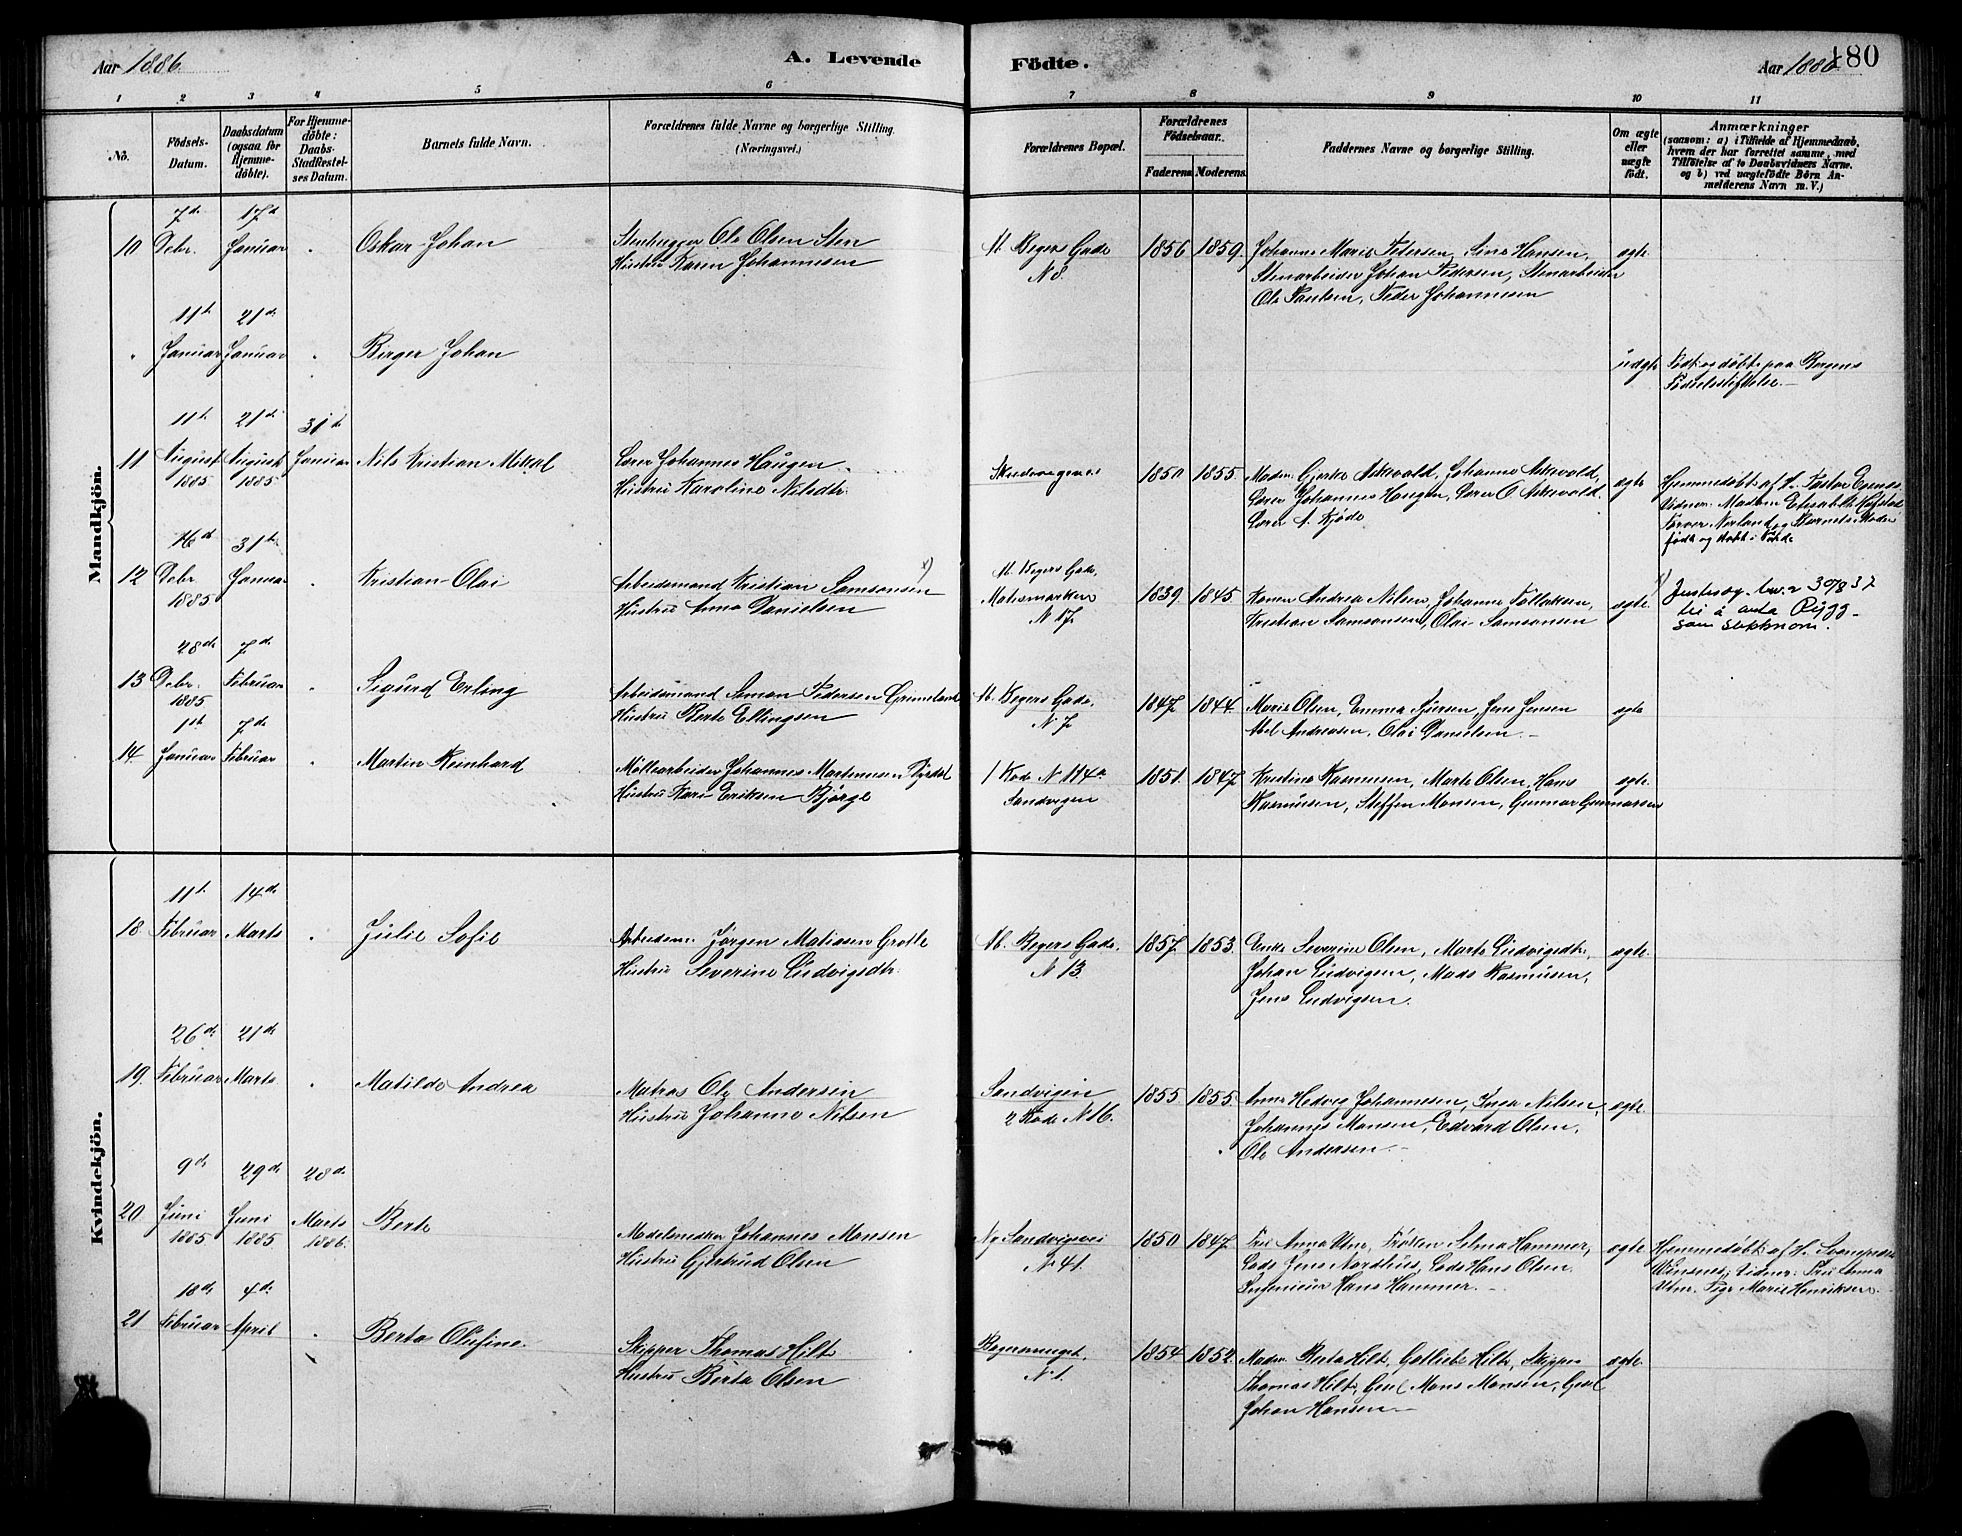 Aar 1886.
A. Levende Födte.
Aar 1886.
180
1 2 3 4 5 6 7 8 9 10 11
No.
Födsels-Datum.
Daabsdatum (ogsaa for Hjemmedöbte).
For Hjemmedöbte: Daabs-Stadfæstelses Datum.
Barnets fulde Navn.
Forældrenes fulde Navne og borgerlige Stilling. (Næringsvei.)
Forældrenes Bopæl.
Forældrenes Födselsaar.
Faderens. Moderens.
Faddernes Navne og borgerlige Stilling.
Om ægte eller uægte födt.
Anmærkninger
(saasom: a) i Tilfælde af Hjemmedaab,
hvem der har forrettet samme, med
Tilföielse af to Daabsvidners Navne.
og b) ved uægtefödte Börn An-
melderens Navn m. V.)
Mandkjön.
10 7de Debr. 17d Januar " Oskar Johan
Stenhugger Ole Olsen Sten
Hustru Karen Johannesen
M. Begers Gade
N 8.
1856 1859.
Johanne Marie Petersen, Sine Hansen,
Stenarbeider Johan Pedersen, Stenarbeider
Ole Paulsen, Peder Johannesen
ægte
" 11te Januar 21de Januar " Birger Johan
uægte
Födt og döbt paa Bergens
Födselsstiftelse.
11 11te August 1885 21de August 1885 31te Januar Nils Kristian Mikal
Lærer Johannes Haugen
Hustru Karoline Nilsdtr.
Skudevigsvei
1850 1855.
Madm. Gjerke Askvold, Johanne Askvold,
Lærer Johannes Haugen, Lærer O Askvold.
Lærer A. Kjöde
ægte
Hjemmedöbt af H. Pastor Egenes
Vidner: Madam Elisabeth Hafstad
Farver Nerland og Barnets Moder
född og döbt i Förde
12 16d Debr. 1885 31te Januar " Kristian Olai
Arbeidsmand Kristian Samsonsen x)
Hustru Anna Danielsen
M. Begers Gade,
Matismarken
N 17
1839. 1845.
Konen Andrea Nilsen, Johanne Tollaksen,
Kristian Samsonsen, Olai Samsonsen
ægte.
x) Justisog. bev. 2 30/8 37
til å anta Rygg
som slektnavn.
13 28de Debr. 1885 7de Februar " Sigurd Erling
Arbeidsmand Simon Pedersen Grimeland
Hustru Berte Ellingsen
M. Begers Gade,
N 7
1847 1844.
Marie Olsen, Emma Iversen, Jens Jensen
Abel Andreasen, Olai Danielsen.
ægte
14 1ste Januar 7de Februar " Martin Reinhard
Möllearbeider Johannes Martinusen Dyrdal
Hustru Kari Eriksen Bjørge
1 Rode N 114a
Sandvigen
1851. 1847
Kristine Rasmusen, Marte Olsen, Hans
Rasmusen, Steffen Monsen, Gunnar Gunnarsen
ægte.
Kvindekjön.
18. 11te Februar 14de Marts " Julie Sofie
Arbeidsm. Jörgen Matiasen Grotle
Hustru Severine Ludvigsdtr.
M. Begers Gade.
N 13.
1857. 1853.
Enke Severine Olsen, Marte Ludvigsdtr.,
Johan Ludvigsen, Mads Rasmusen,
Jens Ludvigsen.
ægte.
19. 26de Februar 21de Marts " Matilde Andrea
Matros Ole Andersen
Hustru Johanne Nilsen
Sandvigen
2 Rode N 16.
1855 1855.
Anna Hedvig Johannesen, Inga Nilsen,
Johannes Monsen, Edvard Olsen,
Ole Andersen.
ægte.
20. 9de Juni 1885. 29de Juni 1885. 28de Marts 1886. Berte
Modelsnedker Johannes Monsen
Hustru Gjertrud Olsen
Ny Sandvigsvei
N 41.
1850 1847.
Frü Anna Utne, Fröken Selma Hammer,
Lods Jens Nordhus, Lods Hans Olsen
Ingenieur Hans Hammer.
ægte
Hjemmedöbt af H. Sognepræst
Vidner: Frü Anna
Utne. Pige Marie Henriksen.
21 18de Februar 4de April " Berta Olufine.
Skipper Thomas Hilt
Hustru Berta Olsen
N 1.
1854 1852.
Madm. Berta Hilt, Gotliebe Hilt, Skipper
Thomas Hilt, Gsel Mons Monsen, Gsel
Johan Hansen.
ægte.